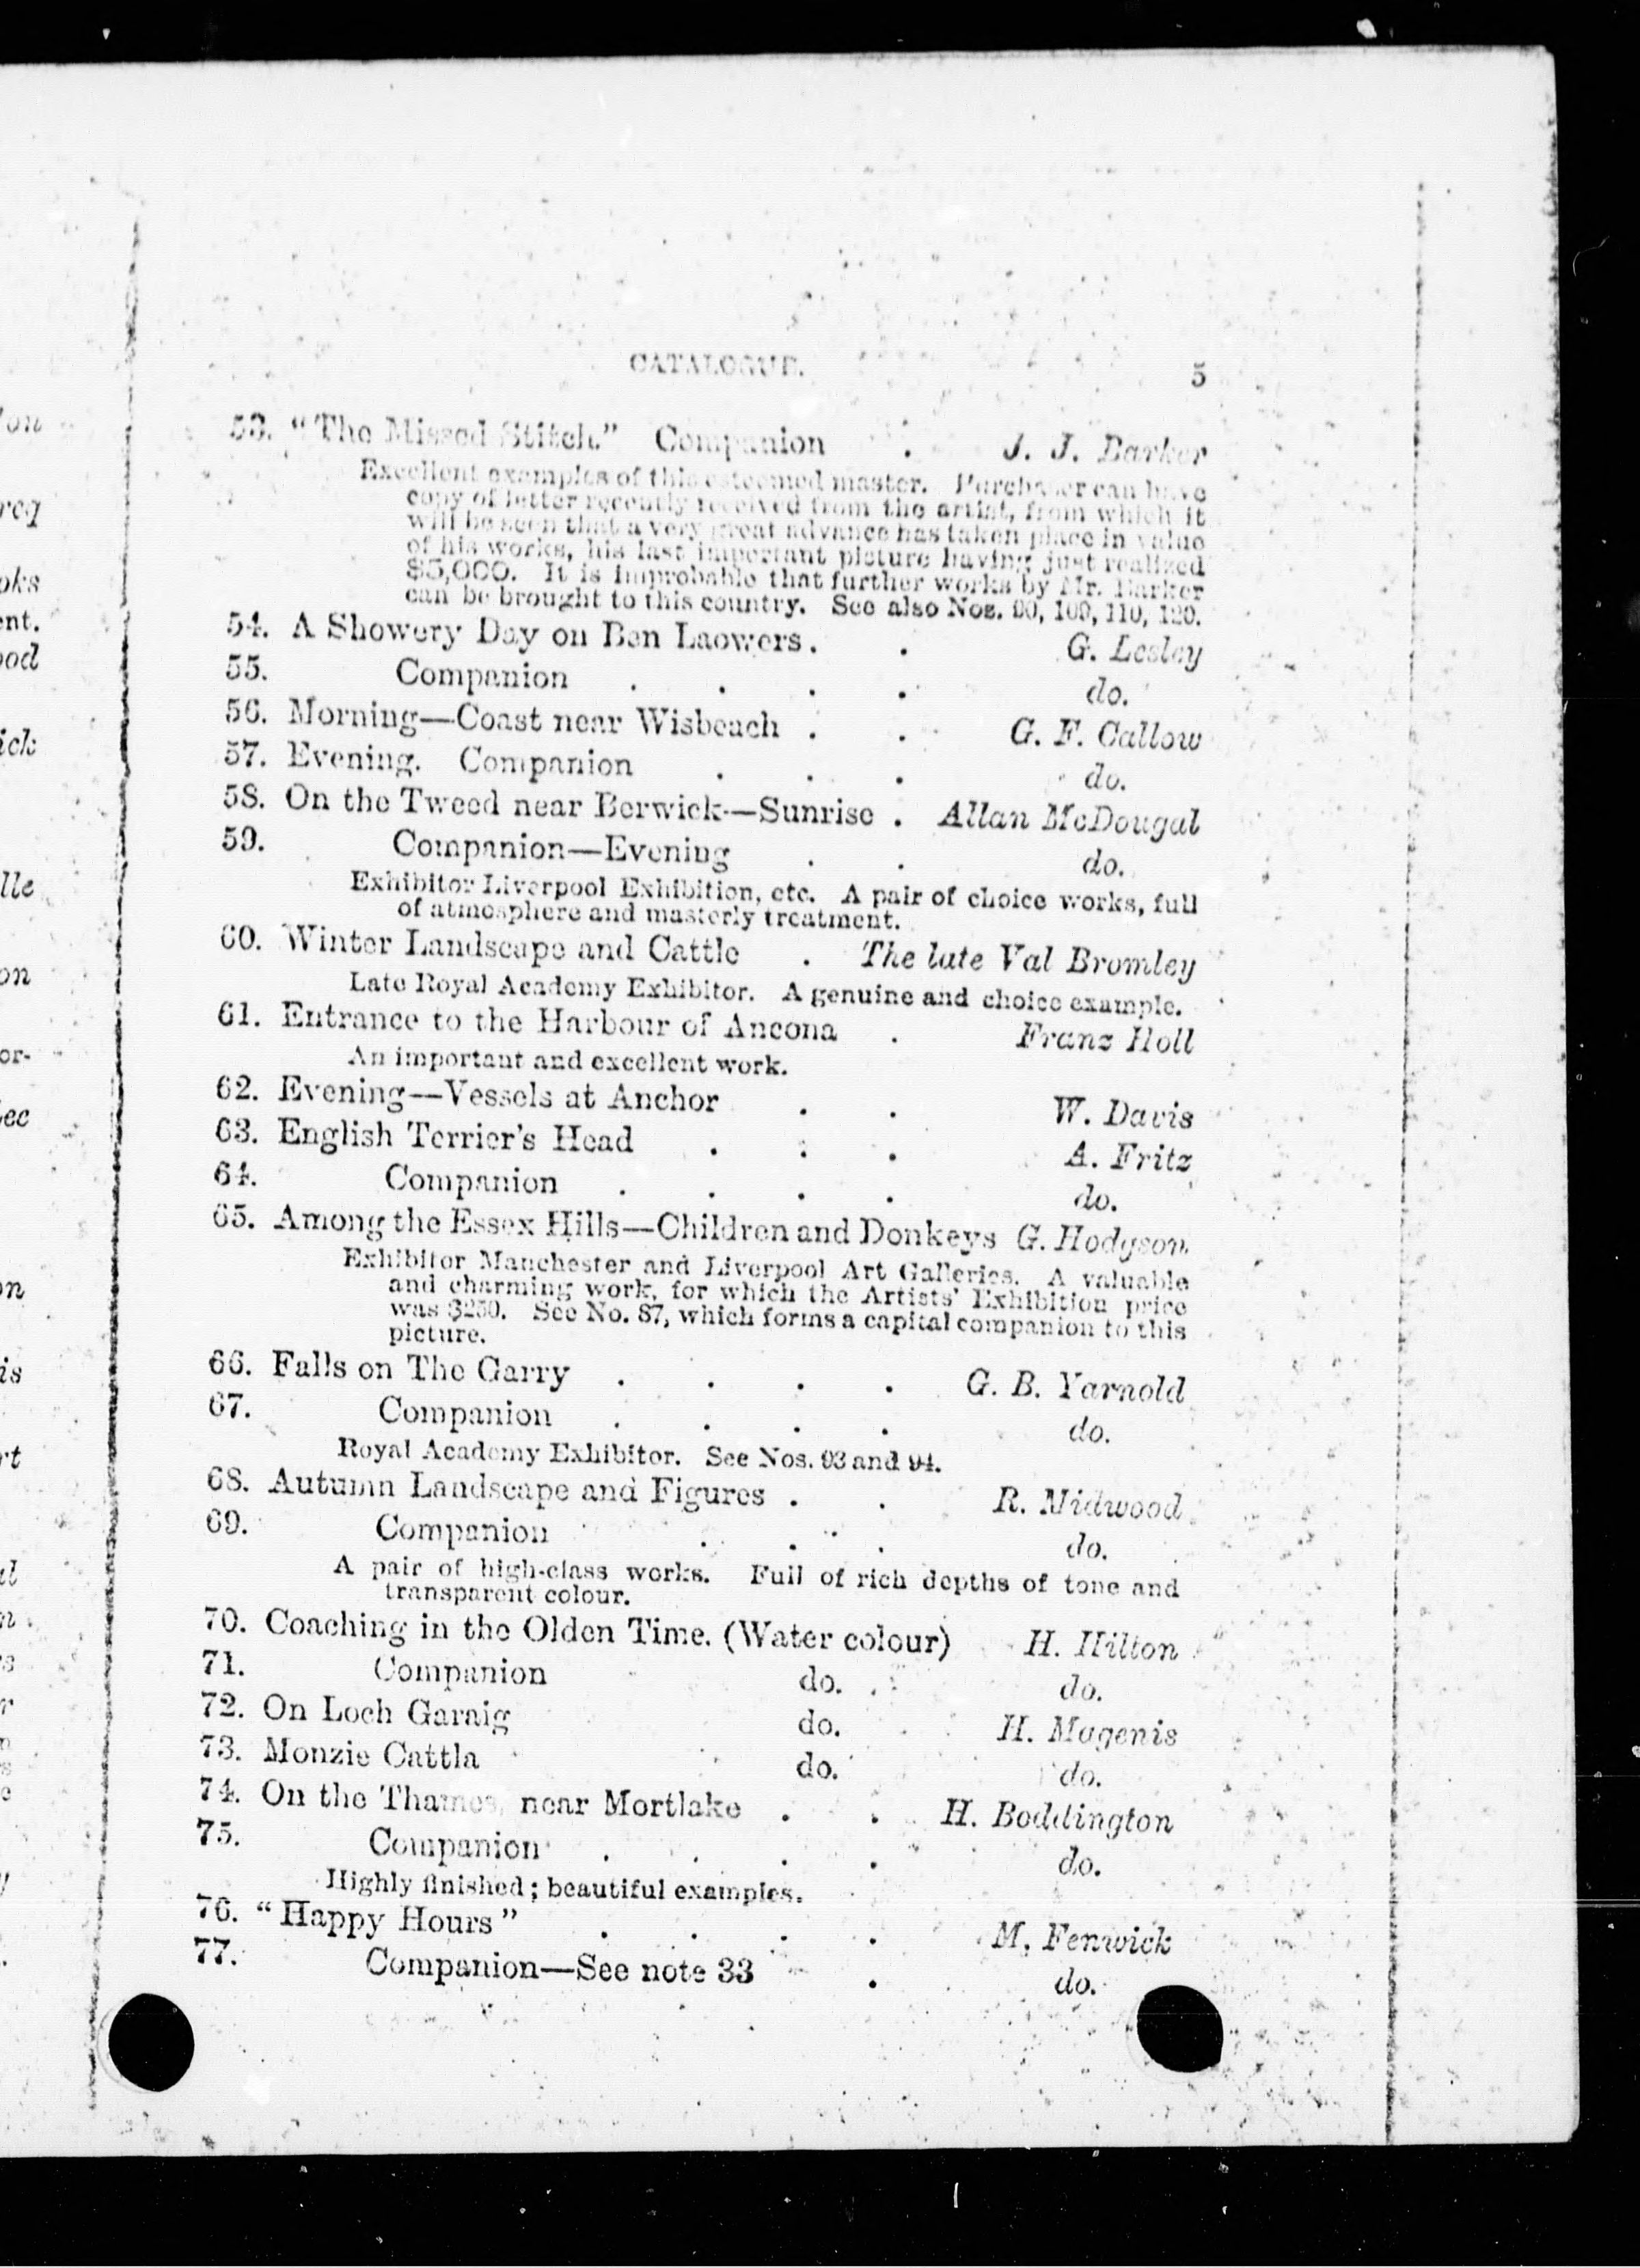 CATALOGUE. 5
53. "The Missed Stitch." Companion . J. J. Barker
Excellent examples of this esteemed master. Purchaser can have
copy of letter recently received from the artist, from which it
will be seen that a very great advance has taken place in value
of his works, his last important picture having just realized
$5,000. It is improbable that further works by Mr. Barker
can be brought to this country. See also Nos. 90, 109, 110, 120.
54. A Showery Day on Ben Laowers . . G. Lesley
55. Companion . . . . do.
56. Morning—Coast near Wisbeach . . G. F. Callow
57. Evening. Companion . . . do.
58. On the Tweed near Berwick—Sunrise . Allan McDougal
59. Companion—Evening . . do.
Exhibitor Liverpool Exhibition, etc. A pair of choice works, full
of atmosphere and masterly treatment.
60. Winter Landscape and Cattle . The late Val Bromley
Late Royal Academy Exhibitor. A genuine and choice example.
61. Entrance to the Harbour of Ancona . Franz Holl
An important and excellent work.
62. Evening—Vessels at Anchor . . W. Davis
63. English Terrier's Head . . . A. Fritz
64. Companion . . . . do.
65. Among the Essex Hills—Children and Donkeys G. Hodgson
Exhibitor Manchester and Liverpool Art Galleries. A valuable
and charming work, for which the Artists' Exhibition price
was $250. See No. 87, which forms a capital companion to this
picture.
66. Falls on The Garry . . . . G. B. Yarnold
67. Companion . . . . do.
Royal Academy Exhibitor. See Nos. 93 and 94.
68. Autumn Landscape and Figures . . R. Midwood
69. Companion . . . do.
A pair of high-class works. Full of rich depths of tone and
transparent colour.
70. Coaching in the Olden Time. (Water colour) H. Hilton
71. Companion do. . do.
72. On Loch Garaig do. H. Magenis
73. Monzie Cattla do. do.
74. On the Thames, near Mortlake . . H. Boddington
75. Companion . . . . do.
Highly finished; beautiful examples.
76. "Happy Hours" . . . . M. Fenwick
77. Companion—See note 33 . do.